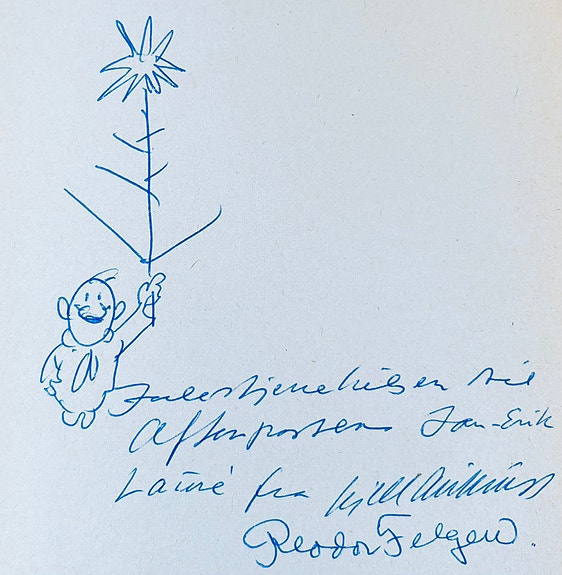 Julestjernehilsen til
Aftenpostens Jan-Erik
Laure fra Kjell Aukrust
Reodor Felgen.